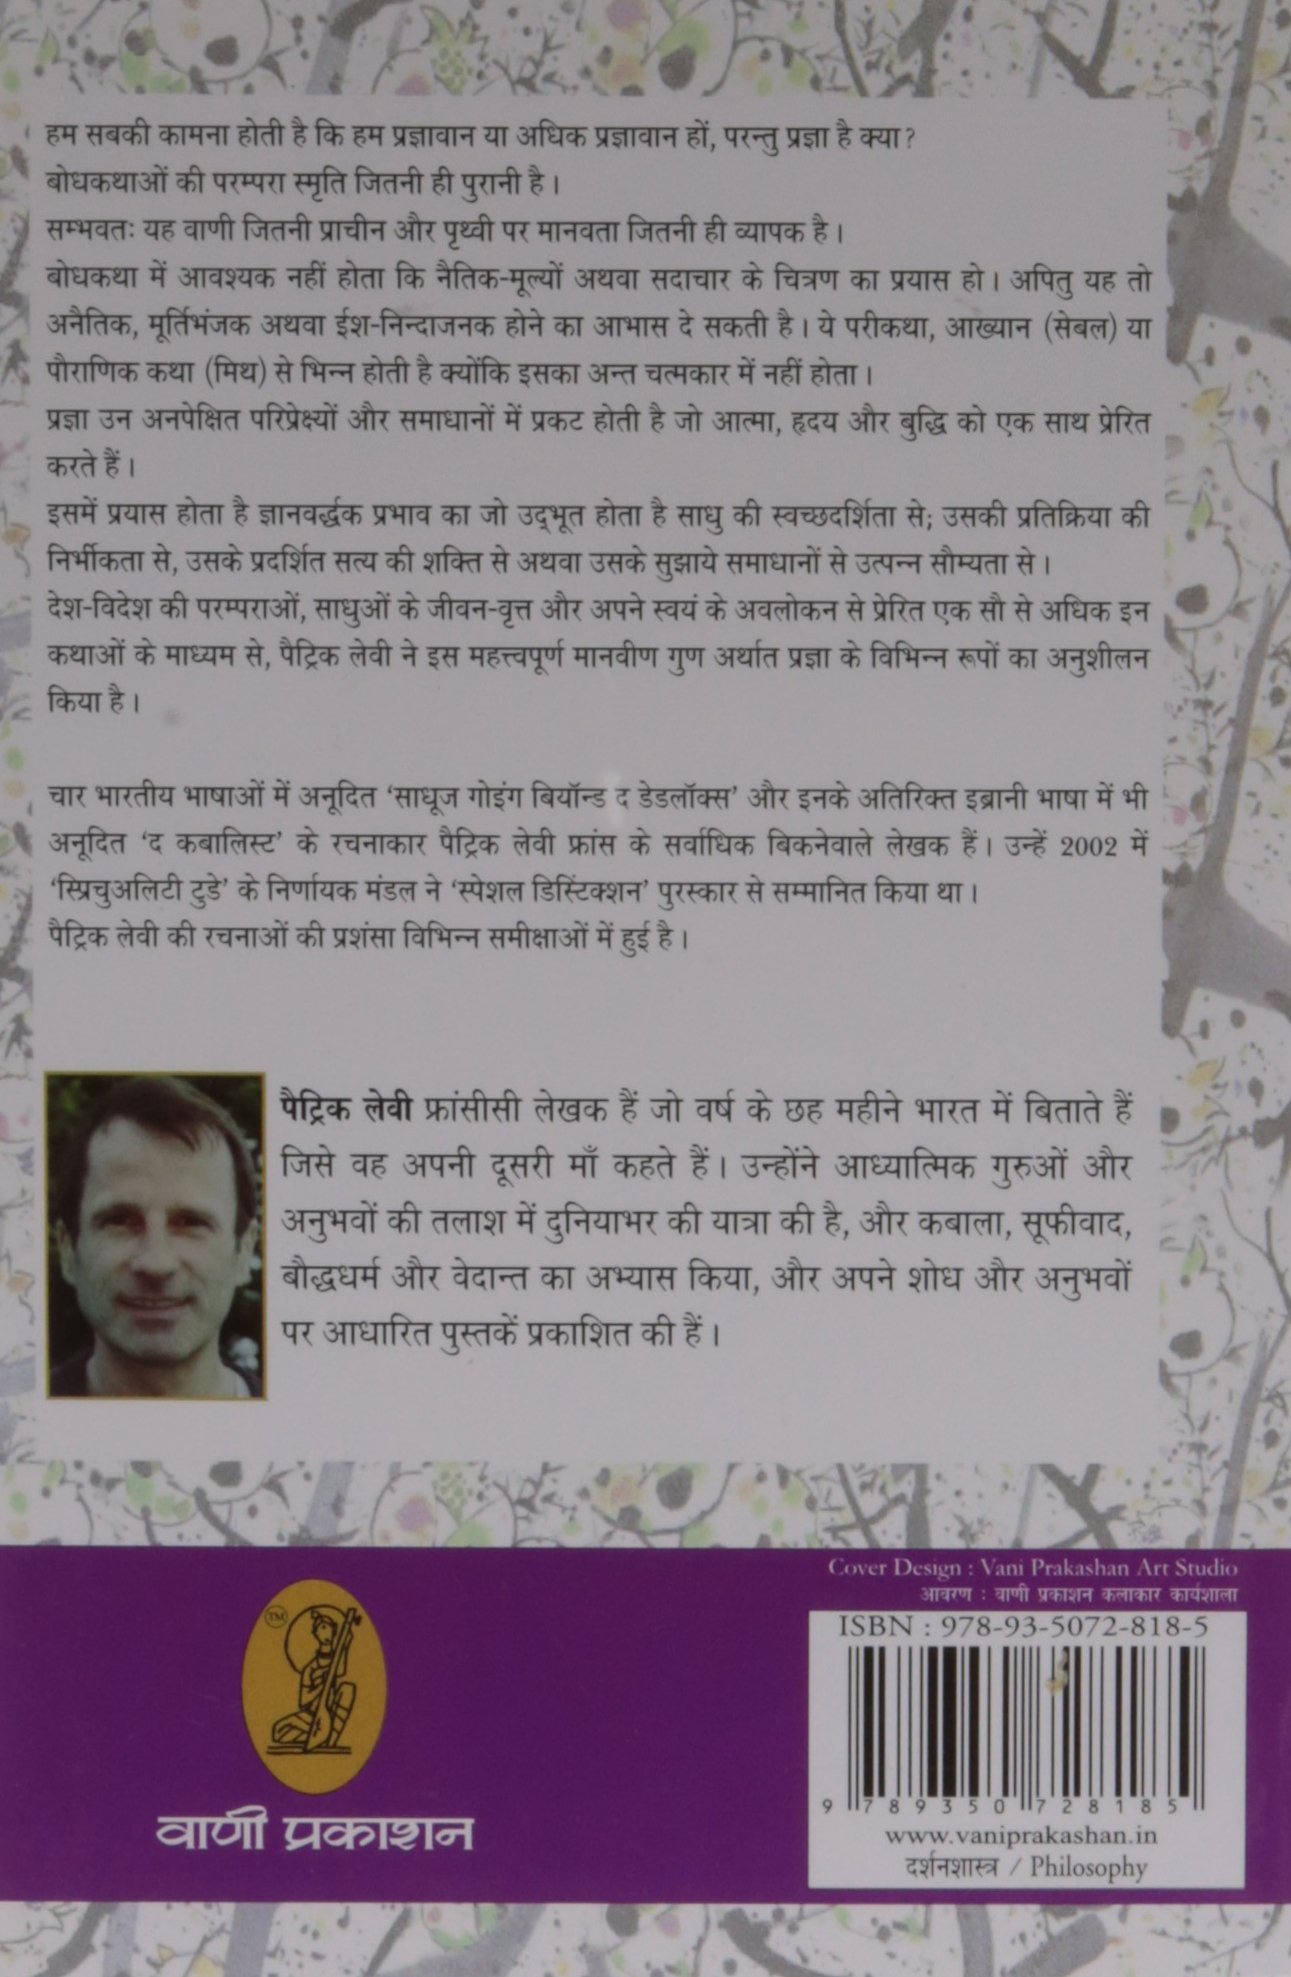 हम सबकी कामना होती है कि हम प्रज्ञावान या अधिक प्रज्ञावान हों, परन्तु प्रज्ञा है क्या?
बोधकथाओं की परम्परा स्मृति जितनी ही पुरानी है।
सम्भवतः यह वाणी जितनी प्राचीन और पृथ्वी पर मानवता जितनी ही व्यापक है।
बोधकथा में आवश्यक नहीं होता कि नैतिक-मूल्यों अथवा सदाचार के चित्रण का प्रयास हो। अपितु यह तो
अनैतिक, मूर्तिभंजक अथवा ईश-निन्दाजनक होने का आभास दे सकती है। ये परीकथा, आख्यान (सेबल) या
पौराणिक कथा (मिथ) से भिन्न होती है क्योंकि इसका अन्त चत्मकार में नहीं होता।
प्रज्ञा उन अनपेक्षित परिप्रेक्ष्यों और समाधानों में प्रकट होती है जो आत्मा, हृदय और बुद्धि को एक साथ प्रेरित
करते हैं।
इसमें प्रयास होता है ज्ञानवर्द्धक प्रभाव का जो उद्‌भूत होता है साधु की स्वच्छदर्शिता से; उसकी प्रतिक्रिया की
निर्भीकता से, उसके प्रदर्शित सत्य की शक्ति से अथवा उसके सुझाये समाधानों से उत्पन्न सौम्यता से।
देश-विदेश की परम्पराओं, साधुओं के जीवन-वृत्त और अपने स्वयं के अवलोकन से प्रेरित एक सौ से अधिक इन
कथाओं के माध्यम से, पैट्रिक लेवी ने इस महत्त्वपूर्ण मानवीण गुण अर्थात प्रज्ञा के विभिन्न रूपों का अनुशीलन
किया है।
चार भारतीय भाषाओं में अनूदित ‘साधूज गोइंग बियॉन्ड द डेडलॉक्स’ और इनके अतिरिक्त इब्रानी भाषा में भी
अनूदित ‘द कबालिस्ट’ के रचनाकार पैट्रिक लेवी फ्रांस के सर्वाधिक बिकनेवाले लेखक हैं। उन्हें 2002 में
‘स्प्रिचुअलिटी टुडे’ के निर्णायक मंडल ने ‘स्पेशल डिस्टिंक्शन’ पुरस्कार से सम्मानित किया था।
पैट्रिक लेवी की रचनाओं की प्रशंसा विभिन्न समीक्षाओं में हुई है।
पैट्रिक लेवी फ्रांसीसी लेखक हैं जो वर्ष के छह महीने भारत में बिताते हैं
जिसे वह अपनी दूसरी माँ कहते हैं। उन्होंने आध्यात्मिक गुरुओं और
अनुभवों की तलाश में दुनियाभर की यात्रा की है, और कबाला, सूफीवाद,
बौद्धधर्म और वेदान्त का अभ्यास किया, और अपने शोध और अनुभवों
पर आधारित पुस्तकें प्रकाशित की हैं।
Cover Design : Vani Prakashan Art Studio
आवरण : वाणी प्रकाशन कलाकार कार्यशाला
ISBN : 978-93-5072-818-5
9 789350 728185
www.vaniprakashan.in
दर्शनशास्त्र / Philosophy
TM
वाणी प्रकाशन